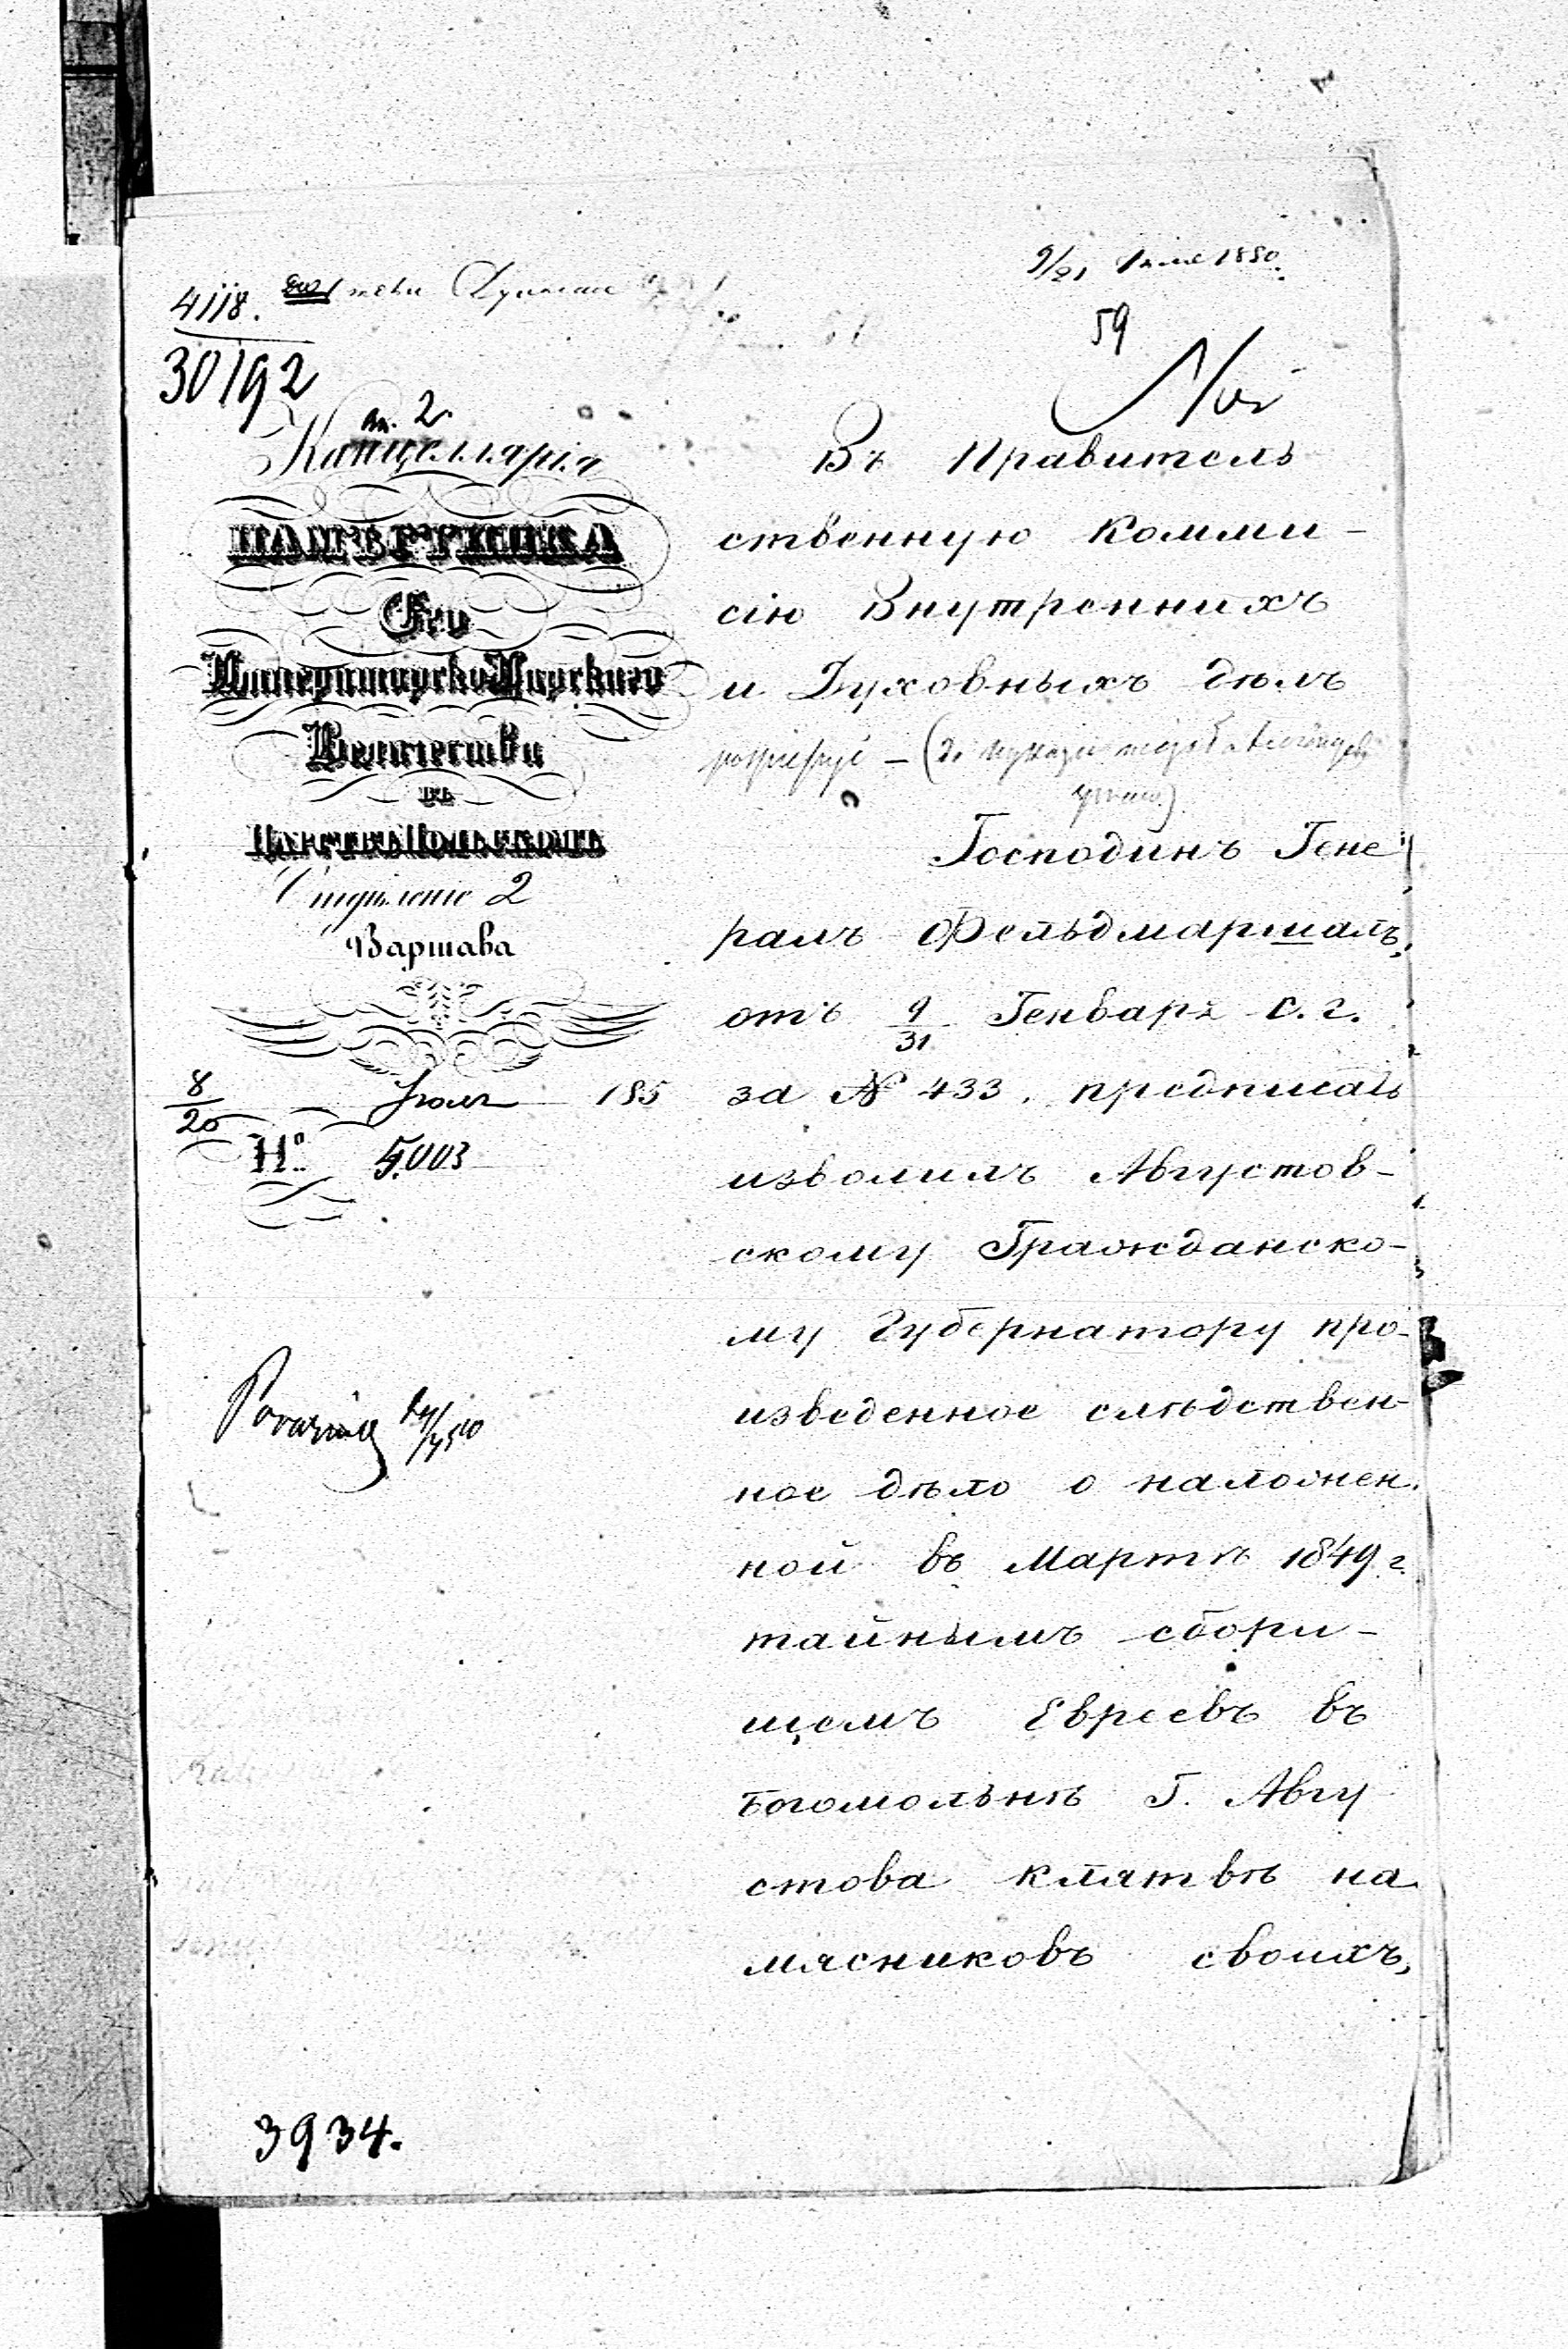 9/21 1850.
4118.
30192
59
вх. 2.
Канцеллярія
НАМѢСТНИКА
Его
Императорско Царскаго
Величества
въ
Царствѣ Польскомъ
Отдѣленіе 2
Варшава
8/20 Іюля 185
Нº 5.003
Въ Правитель
ственную Комми-
сію Внутреннихъ
и Духовныхъ дѣлъ
Господинъ Гене
ралъ Фельдмаршалъ,
отъ 9/31 Генваря с. г.
за № 433. предписать
изволилъ Августов-
скому Гражданско-
му Губернатору про-
изведенное слѣдствен-
ное дѣло о наложен.
ной въ Мартѣ 1849 г.
тайнымъ сбори-
щемъ Евреевъ въ
Богомольнѣ Г. Авгу
стова клятвѣ на
мясниковъ своихъ,
3934.